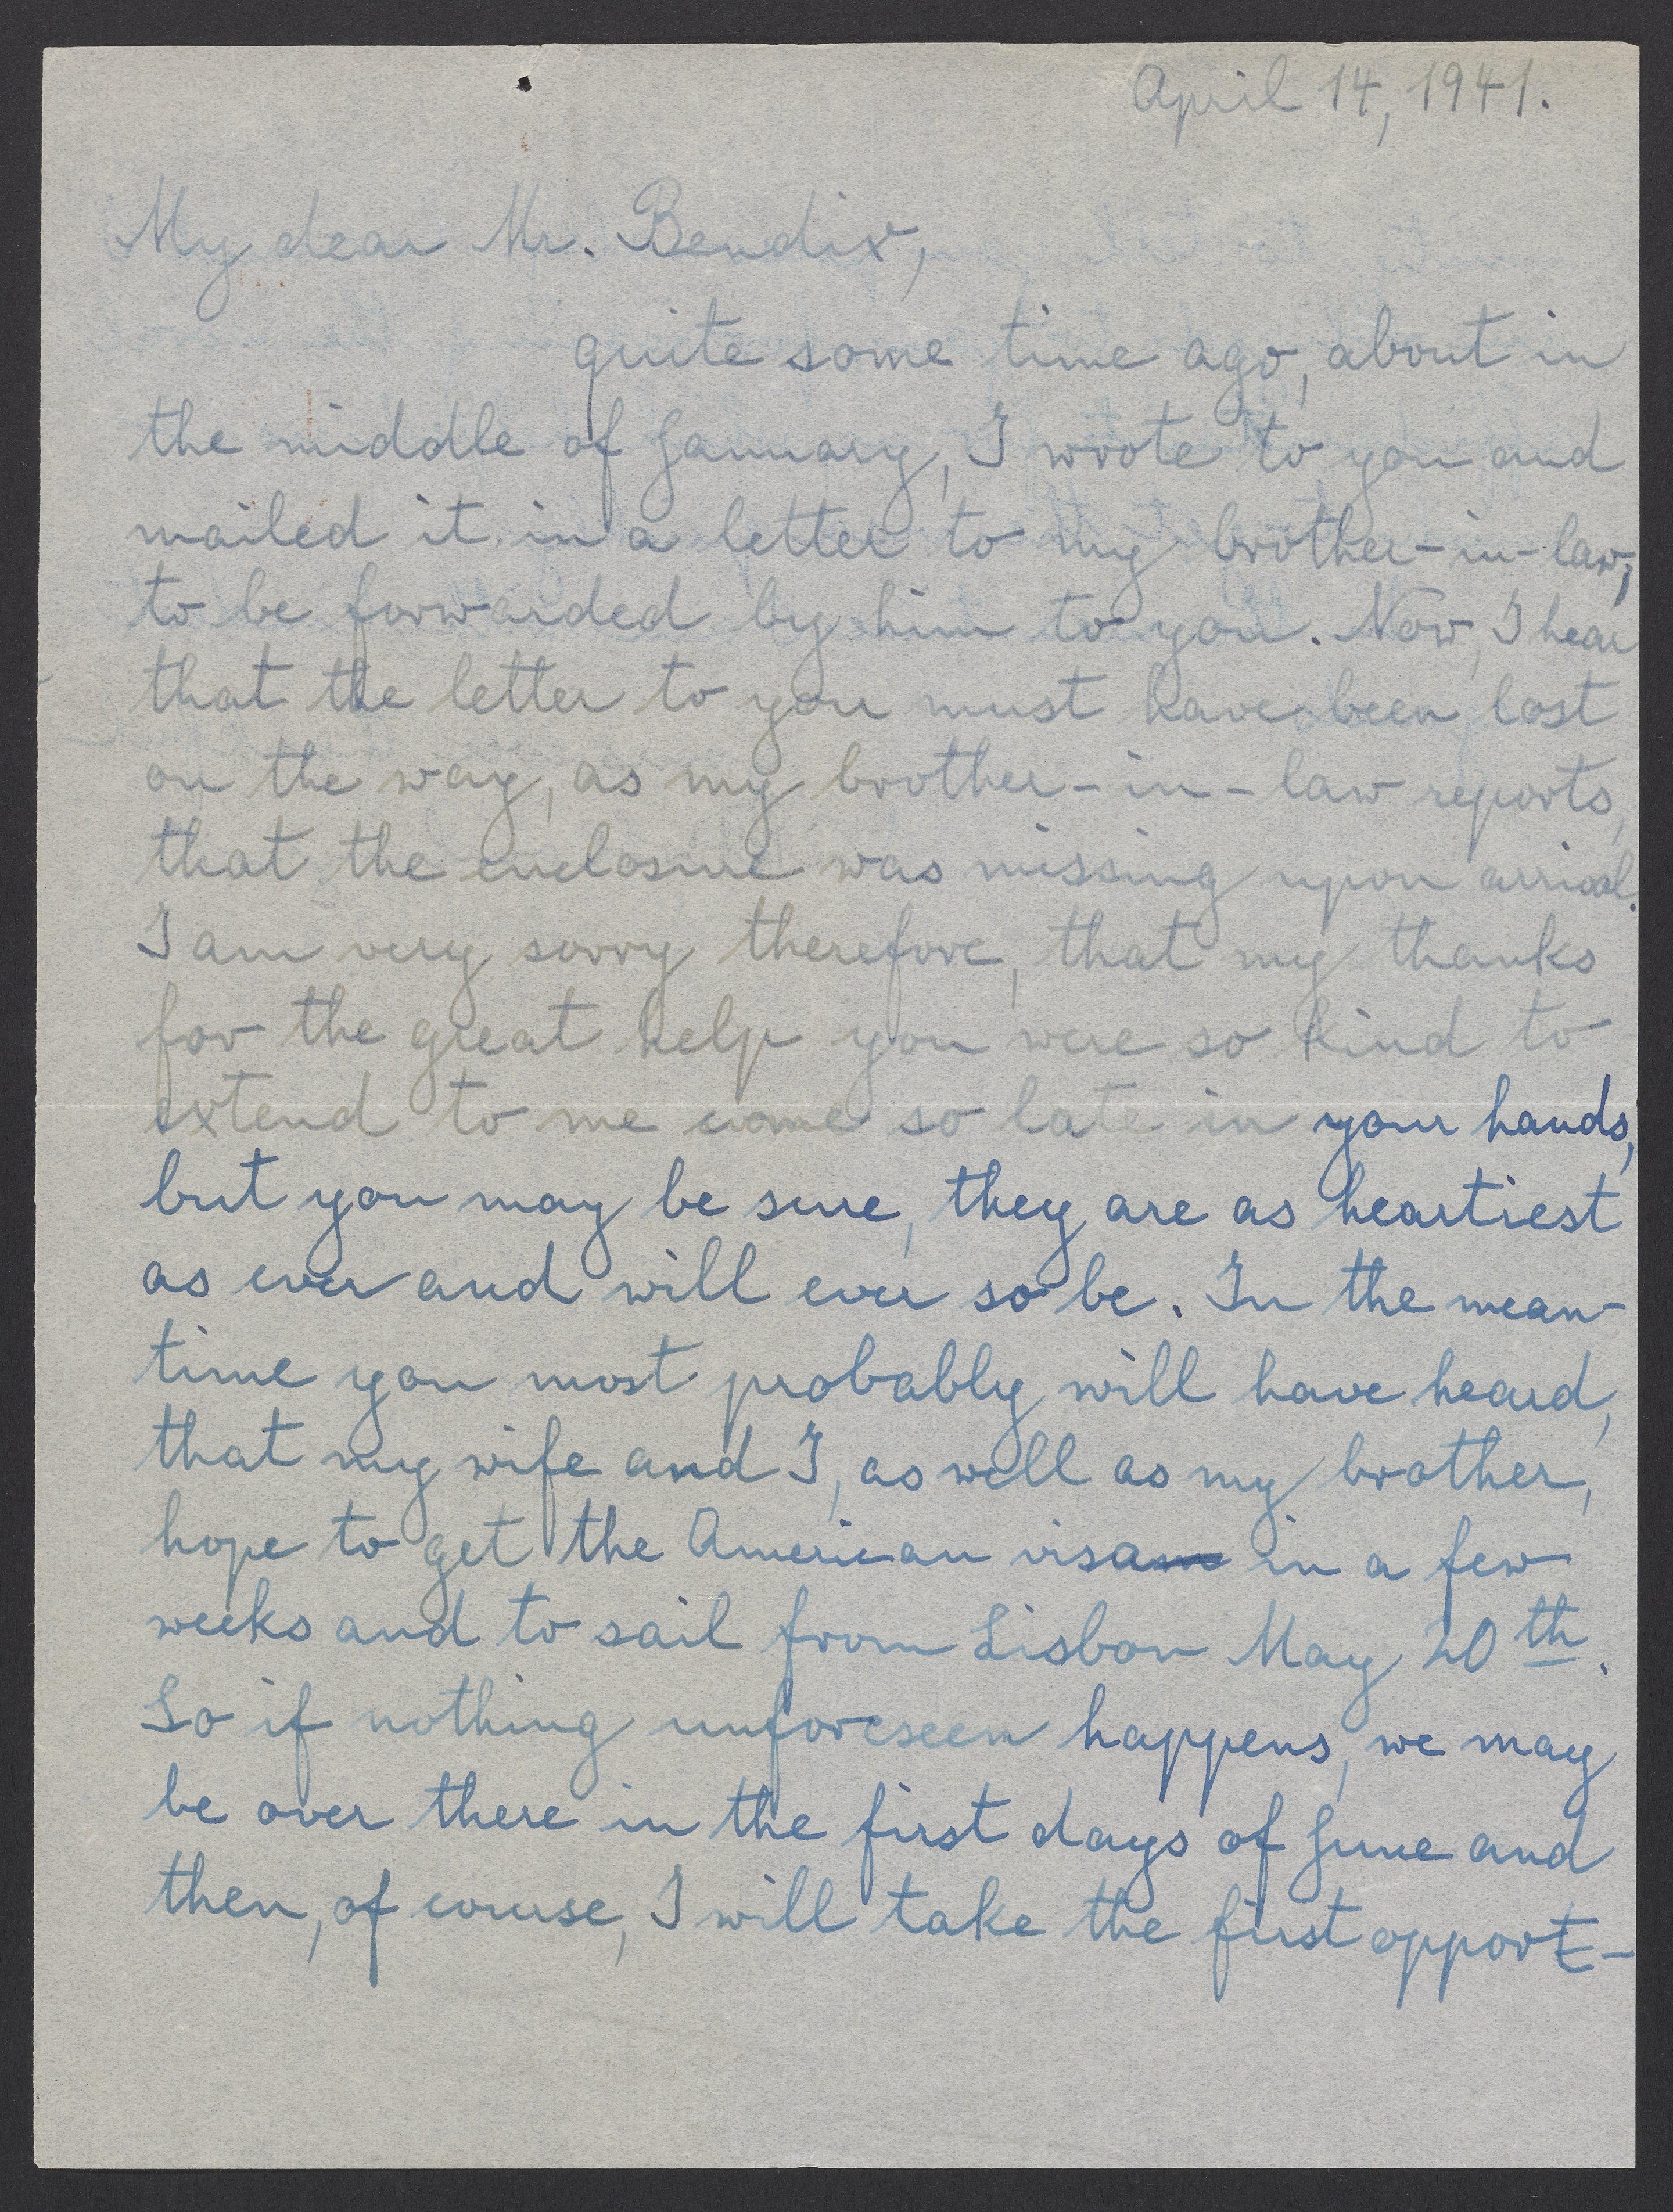 April 14, 1941.
My dear Mr. Bendix,
quite some time ago, about in
the middle of January, I wrote to you and
mailed it in a letter to my brother-in-law,
to be forwarded by him to you. Now, I hear
that the letter to you must have been lost
on the way, as my brother-in-law reports,
that the enclosure was missing upon arrival.
I am very sorry therefore, that my thanks
for the great help you were so kind to
extend to me come so late in your hands,
but you may be sure, they are as heartiest
as ever and will ever so be. In the mean-
time you most probably will have heard,
that my wife and I, as well as my brother,
hope to get the American visa in a few
weeks and to sail from Lisbon May 20th.
So if nothing unforeseen happens, we may
be over there in the first days of June and
then, of course, I will take the first opport-